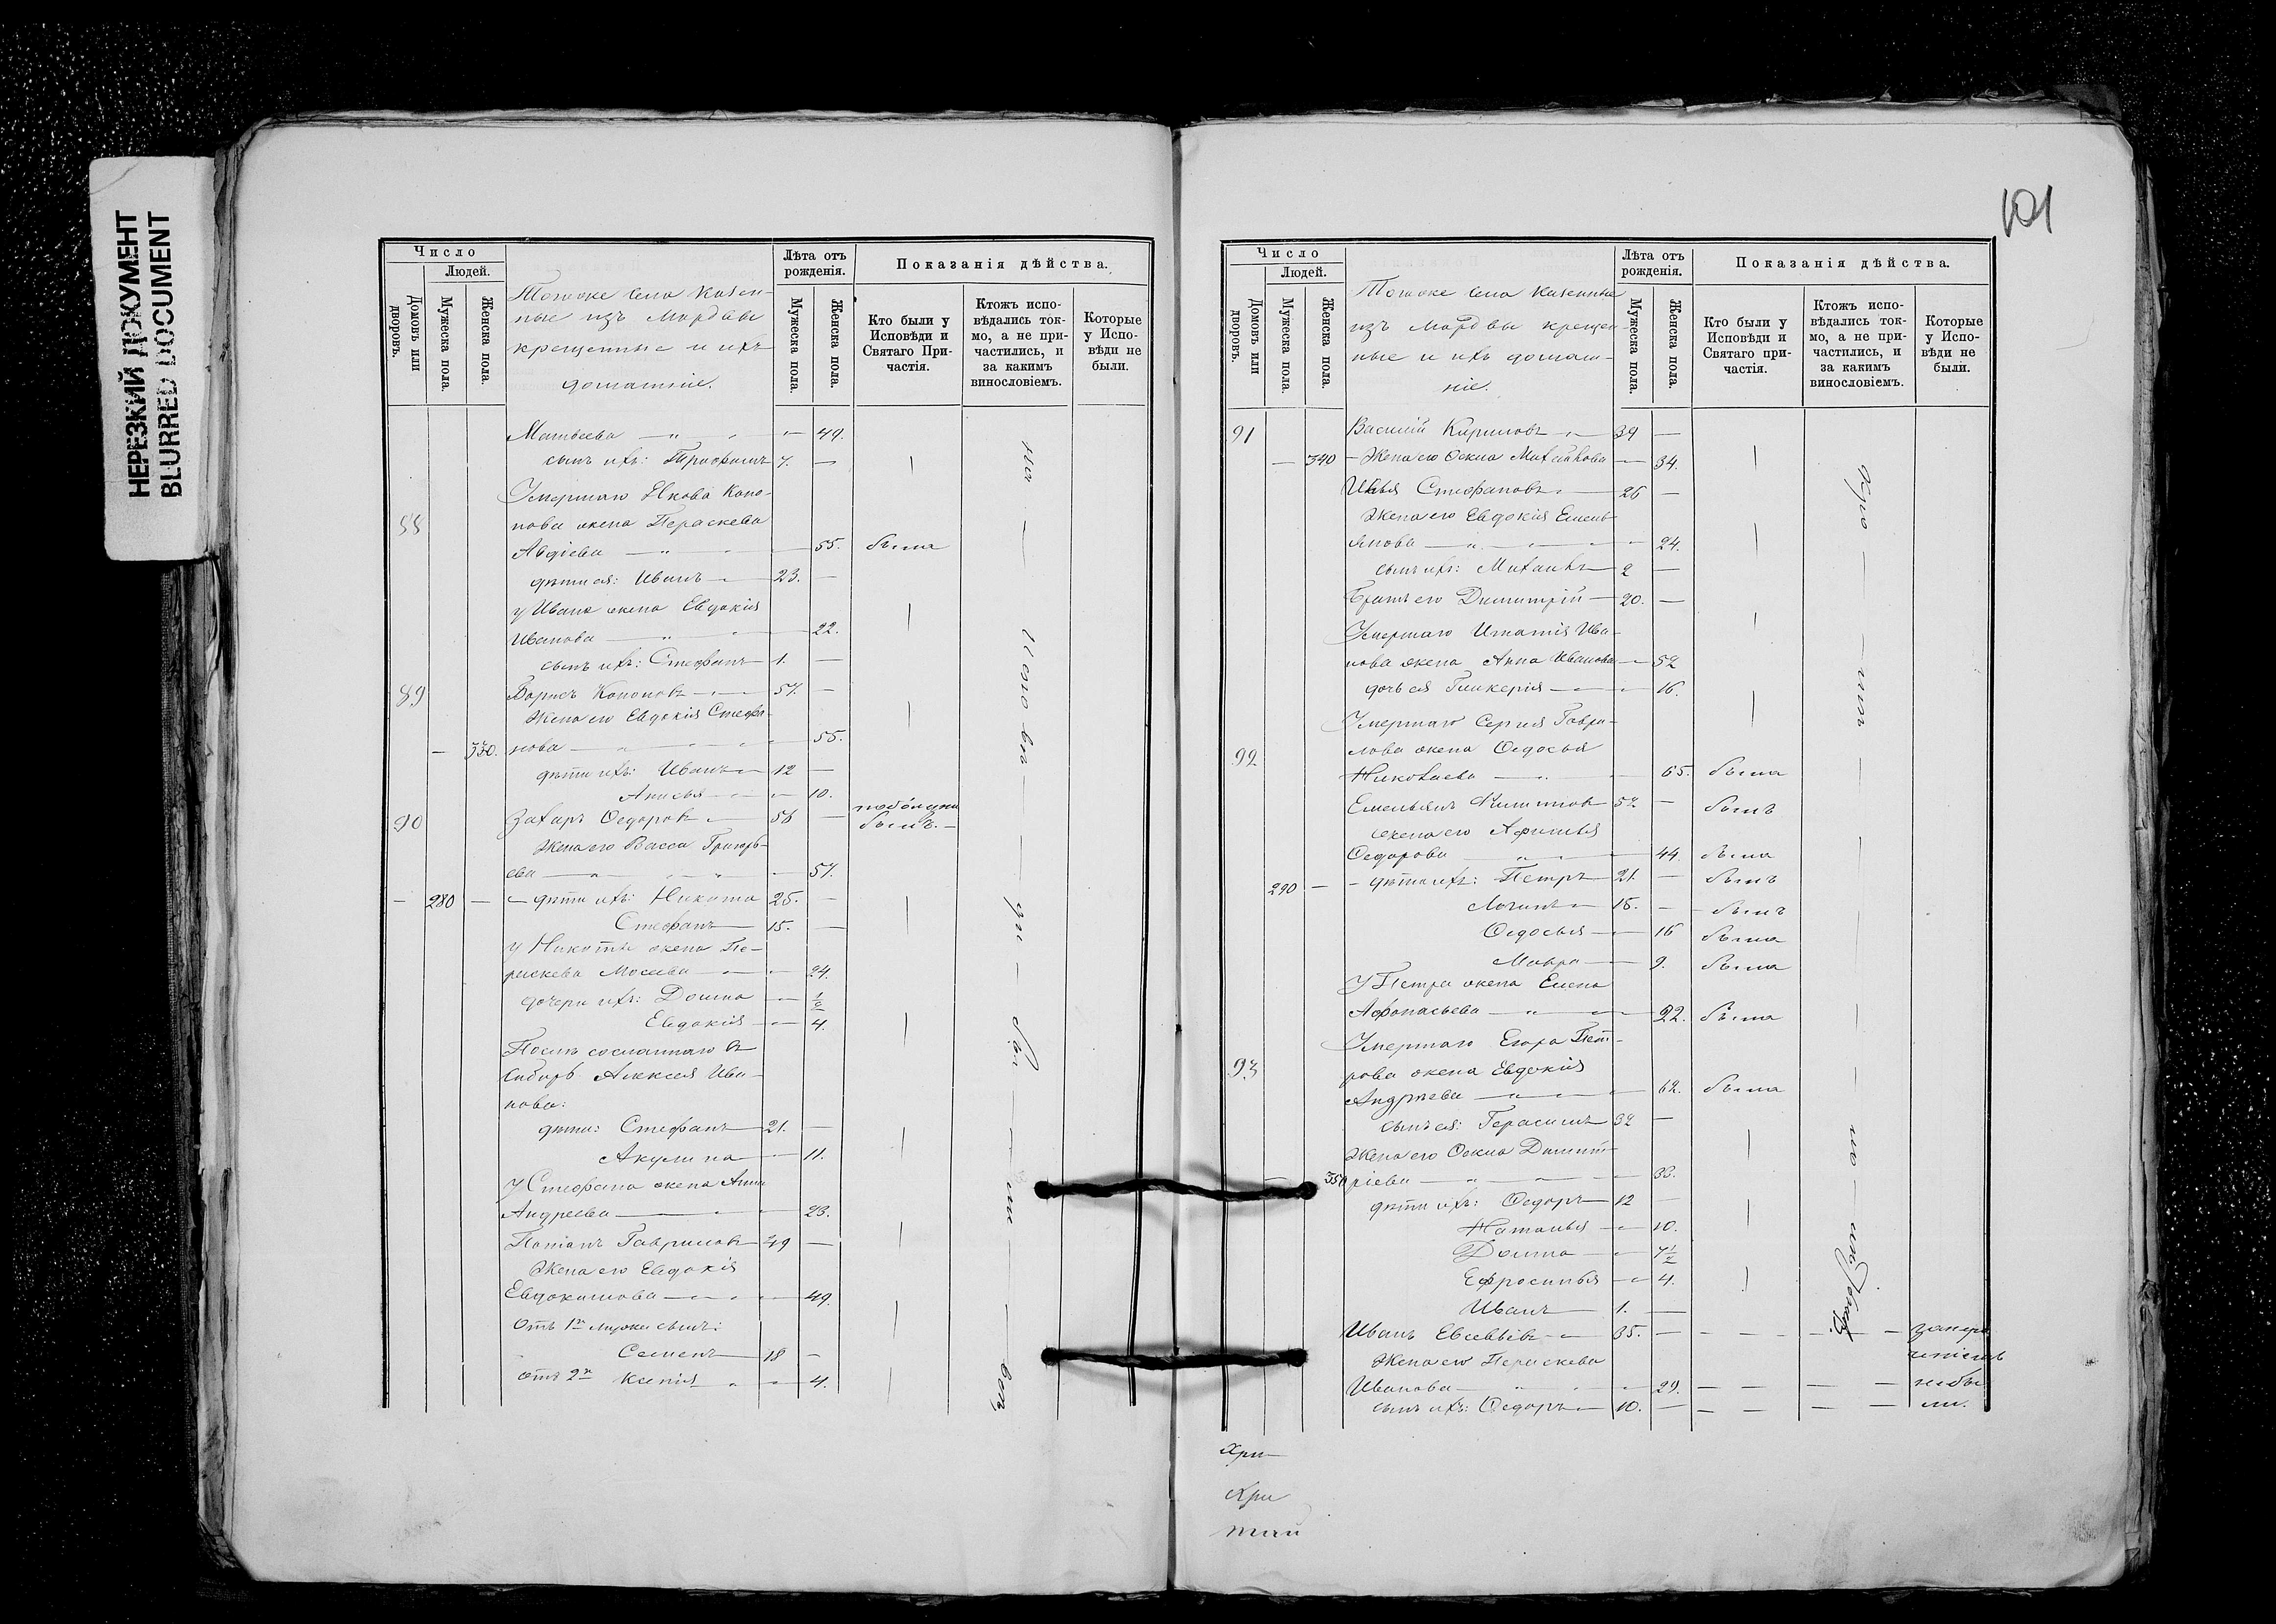 НЕРЕЗКИЙ ДОКУМЕНТ
BLURRED DOCUMENT
Число
Людей.
Домовъ или дворовъ.
Мужеска пола.
Женска пола.
Тогоже села Казен-
ные изъ Мордвы
крещенные и ихъ
домашніе.
Лѣта отъ рожденія.
Мужеска пола.
Женска пола.
Показанія дѣйства.
Кто были у Исповѣди и Святаго Причастія.
Ктожъ исповѣдались токмо, а не причастились, и за какимъ винословіемъ.
Которые у Исповѣди не были.
Матвеева — 49.
сынъ ихъ: Трофимъ 7. —
Умершаго Якова Коно-
88 нова жена Параскева
Авдіева — 55. была
дѣти ея: Иванъ 23. —
у Ивана жена Евдокія
Иванова — 22.
сынъ ихъ: Стефанъ 1. —
89 Борисъ Кононовъ 57. —
Жена его Евдокія Стефа-
— 330. нова — 55.
дѣти ихъ: Иванъ 12 —
Анисья — 10.
90 Захаръ Ѳедоровъ 58 — былъ. —
Жена его Васса Григорь-
ева — 57.
— 280 — дѣти ихъ: Никита 25. —
Стефанъ 15. —
У Никиты жена Па-
раскева Мосеева — 24.
дочери ихъ: Домна — ½
Евдокія — 4.
Послѣ сосланнаго въ
Сибирь Алексея Ива-
нова:
дѣти: Стефанъ 21. —
Акулина — 11.
У Стефана жена Анна
Андреева — 23.
Гавриловъ 49 —
Жена его Евдокія
Евдокимова — 49.
Отъ 1го мужа сынъ:
Семенъ 18 —
отъ 2го Ксенія — 4.
101
Число
Людей.
Домовъ или дворовъ.
Мужеска пола.
Женска пола.
Тогоже села Казенные
изъ мордвы крещен-
ные и ихъ домаш-
ніе.
Лѣта отъ рожденія.
Мужеска пола.
Женска пола.
Показанія дѣйства.
Кто были у Исповѣди и Святаго причастія.
Ктожъ исповѣдались токмо, а не причастились, и за какимъ винословіемъ.
Которые у Исповѣди не были.
91 Василій Кириловъ 39 —
— 340 — Жена его Ѳекла Михайлова — 34.
Илья Стефановъ 26 —
Жена его Евдокія Емель-
янова — 24.
сынъ ихъ: Михаилъ 2 —
Братъ его Димитрій — 20. —
Умершаго Игнатія Ива-
нова жена Анна Иванова — 52
дочь ея Гликерія — 16.
Умершаго Сергія Гаври-
92 лова жена Ѳедосья
Николаева — 65. была
Емельянъ 52 — былъ
жена его Афимья
Ѳедорова — 44. была
290 — дѣти ихъ: Петръ 21. — былъ
Логинъ 18. — былъ
Ѳедосья — 16 была
Мавра — 9. была
У Петра жена Елена
Афонасьева — 22. была
Умершаго Егора Пет-
93 рова жена Евдокія
Андреева — 62. была
сынъ ея: Герасимъ 32 —
Жена его Ѳекла Димит-
350 ріева — 33.
дѣти ихъ: Ѳедоръ 12 —
Наталья — 10.
Домна — 7½
Ефросинья — 4.
Иванъ 1. —
Иванъ Евсевьевъ 35. —
Жена его Параскева
Иванова — 29. — небы-
сынъ ихъ: Ѳедоръ 10. — ли.
Хри
Хри